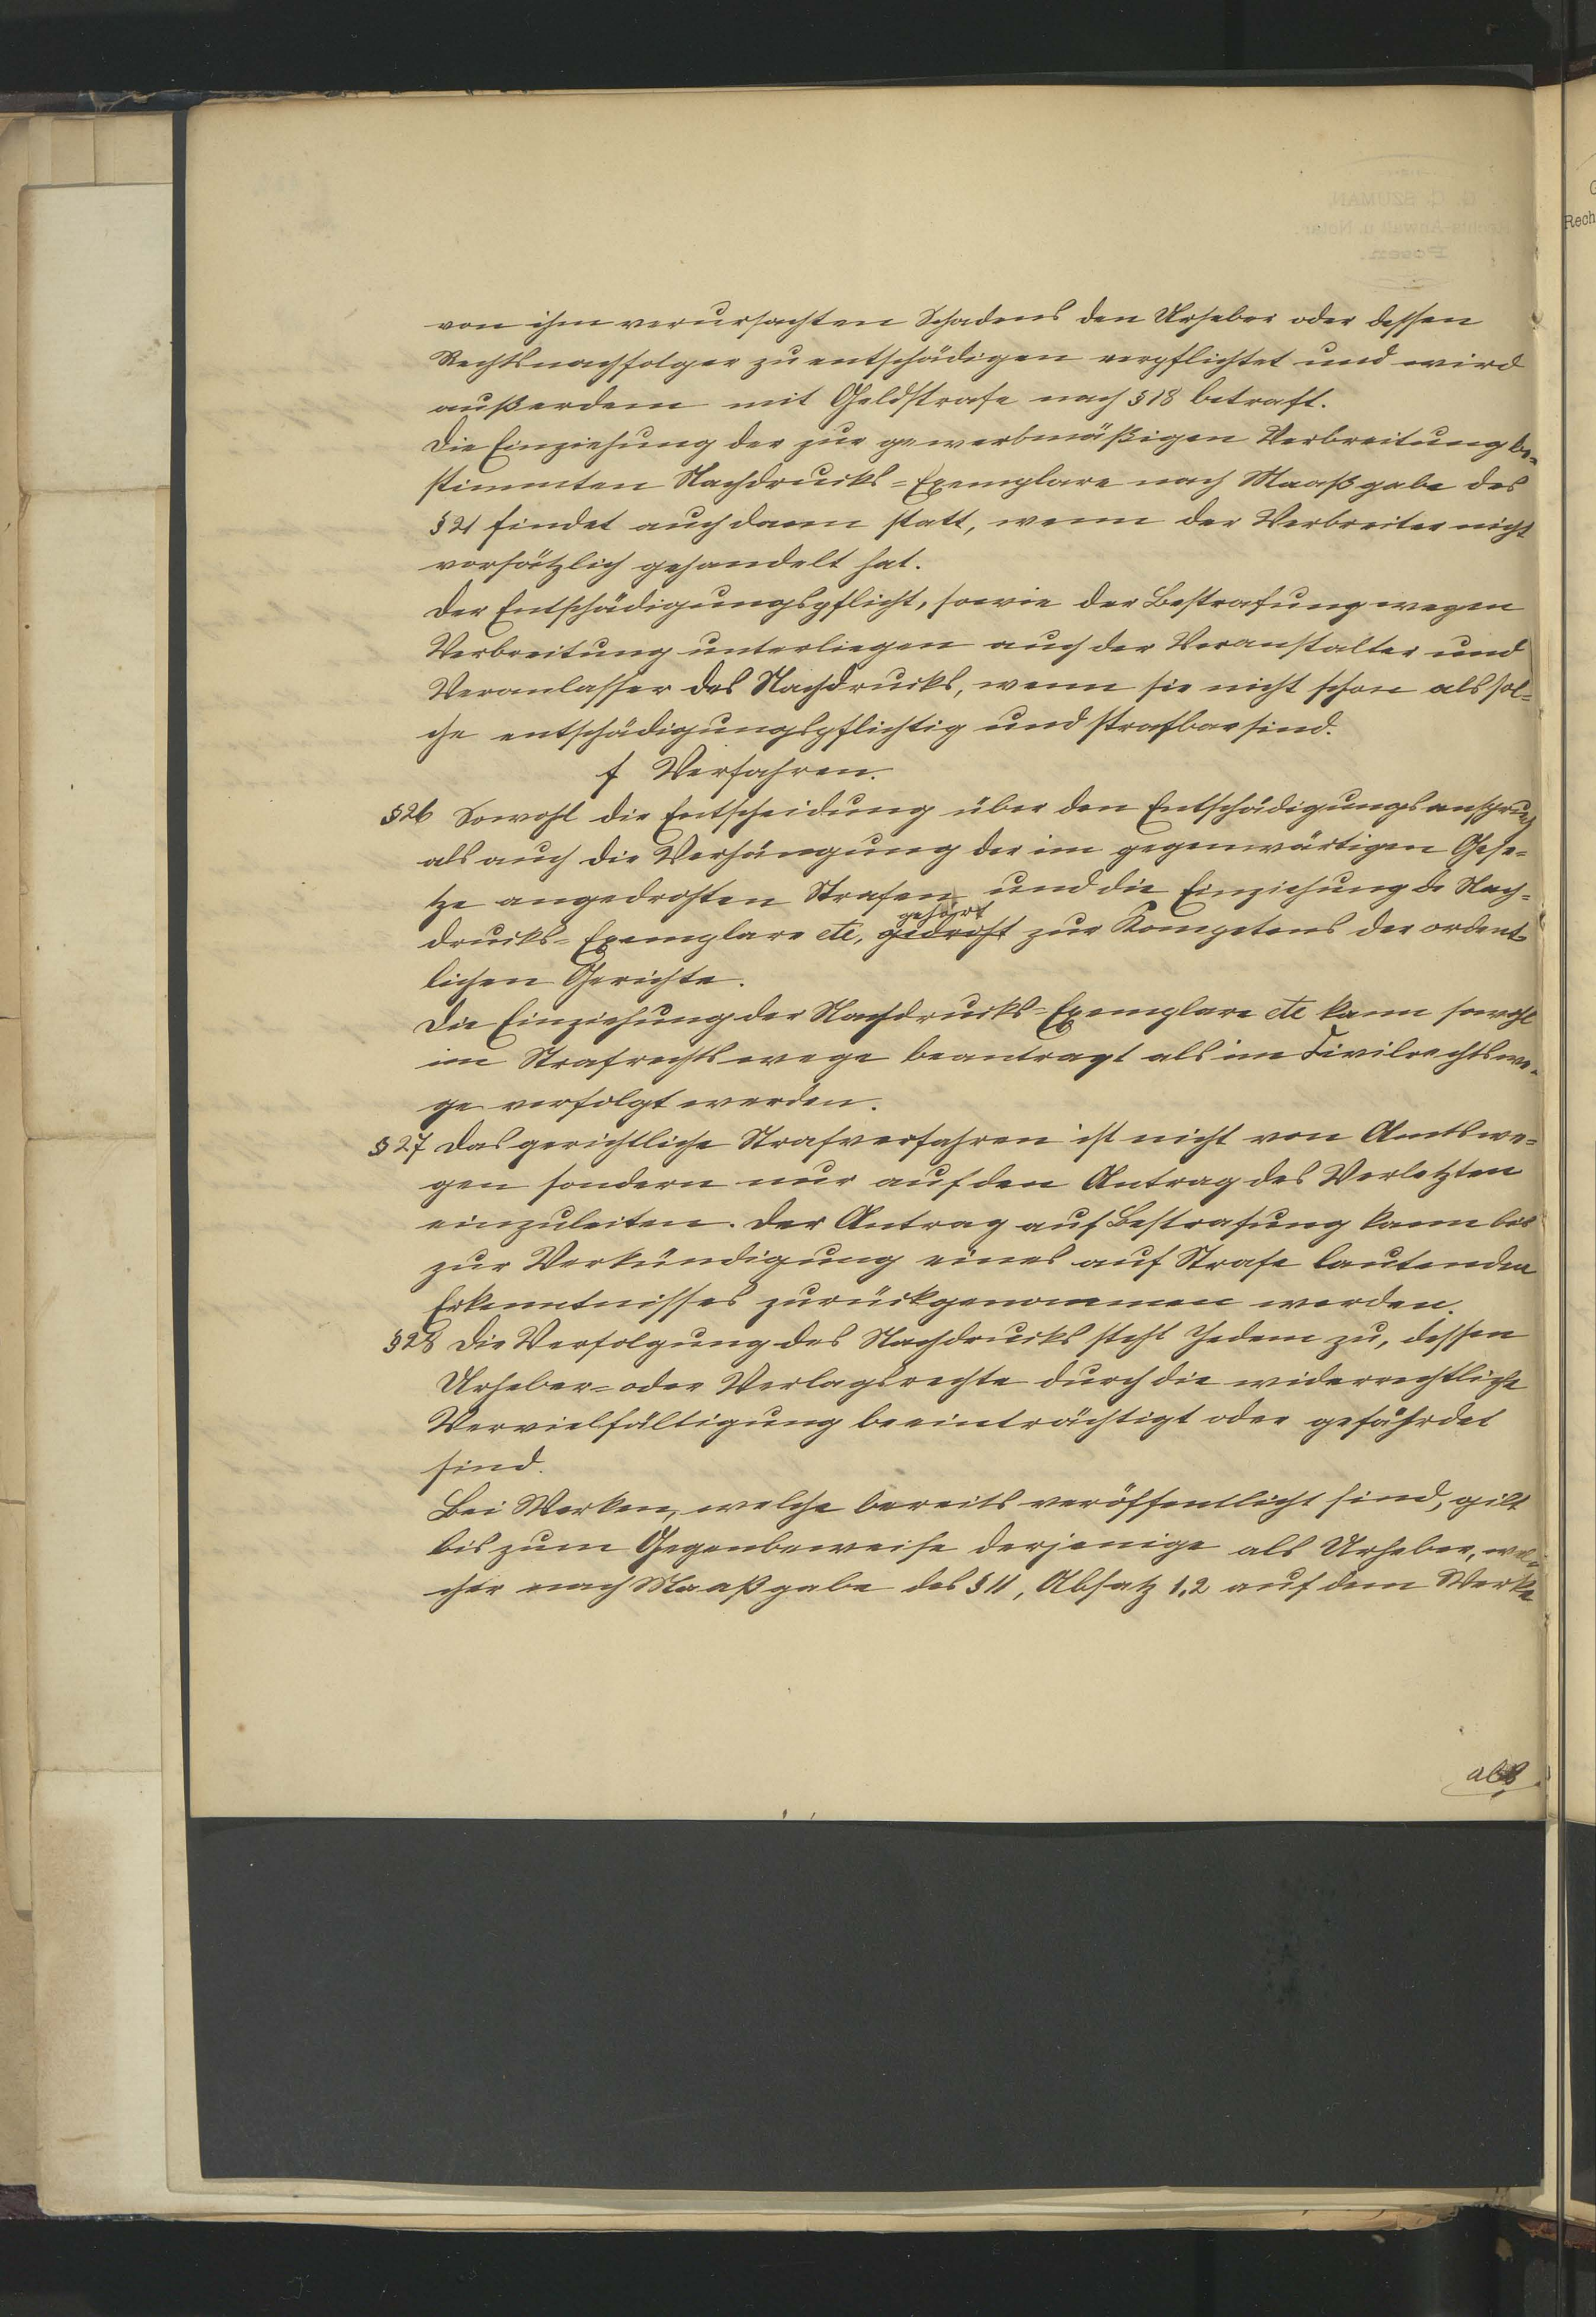 von ihm verursachten Schadens den Urheber oder dessen
Rechtsnachfolger zu entschädigen verpflichtet und wird
außerdem mit Geldstrafe nach § 18 betraft.
Die Einziehung der zur gewerbmäßigen Verbreitung be-
stimmten Nachdrucks=Exemplare nach Maaßgabe des
§ 21 findet auch dann statt, wenn der Verbreiter nicht
vorsätzlich gehandelt hat.
Der Entschädigungspflicht, sowie der Bestrafung wegen
Verbreitung unterliegen auch der Veranstalter und
Veranlasser des Nachdrucks, wenn sie nicht schon als sol=
che entschädigungspflichtig und strafbar sind.
f Verfahren.
§ 26 Sowohl die Entscheidung über den Entschädigungsanspruch
als auch die Verhängung der im gegenwärtigen Gese=
tze angedrohten Strafen und die Einziehung de Nach=
gehört
drucks=Exemplare etc, gedroht zur Kompetens der ordent=
lichen Gerichte.
Die Einziehung der Nachdrucks=Exemplare etc kann sowohl
im Strafrechtswege beantragt als im Civilrechtswe-
ge verfolgt werden.
§ 27 Das gerichtliche Strafverfahren ist nicht von Amtswe=
gen sondern nur auf den Antrag des Verletzten
einzuleiten. Der Antrag auf Bestrafung kann bis
zur Verkündigung eines auf Strafe lautenden
Erkenntnisses zurückgenommen werden.
§ 28 Die Verfolgung des Nachdrucks steht Jedem zu, dessen
Urheber= oder Verlagsrechte durch die widerrechtliche
Vervielfältigung beeinträchtigt oder gefährdet
sind.
Bei Werken, welche bereits veröffentlicht sind, gilt
bis zum Gegenbeweise derjenige als Urheber, wel=
cher nach Maaßgabe des § 11, Absatz 1,2 auf dem Werke
als
G
Rech